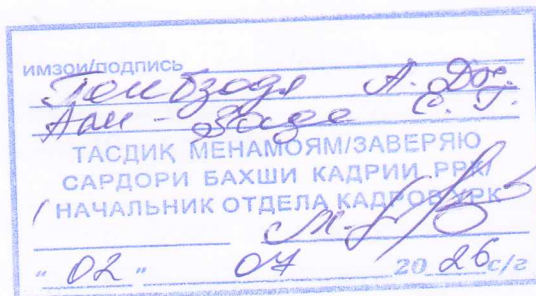 имзои/подпись
А. До.
Али - Заде С. Г.
ТАСДИҚ МЕНАМОЯМ/ЗАВЕРЯЮ
САРДОРИ БАХШИ КАДРИИ РРК/
НАЧАЛЬНИК ОТДЕЛА КАДРОВ УРК
" 02 " 07 2026 с/г